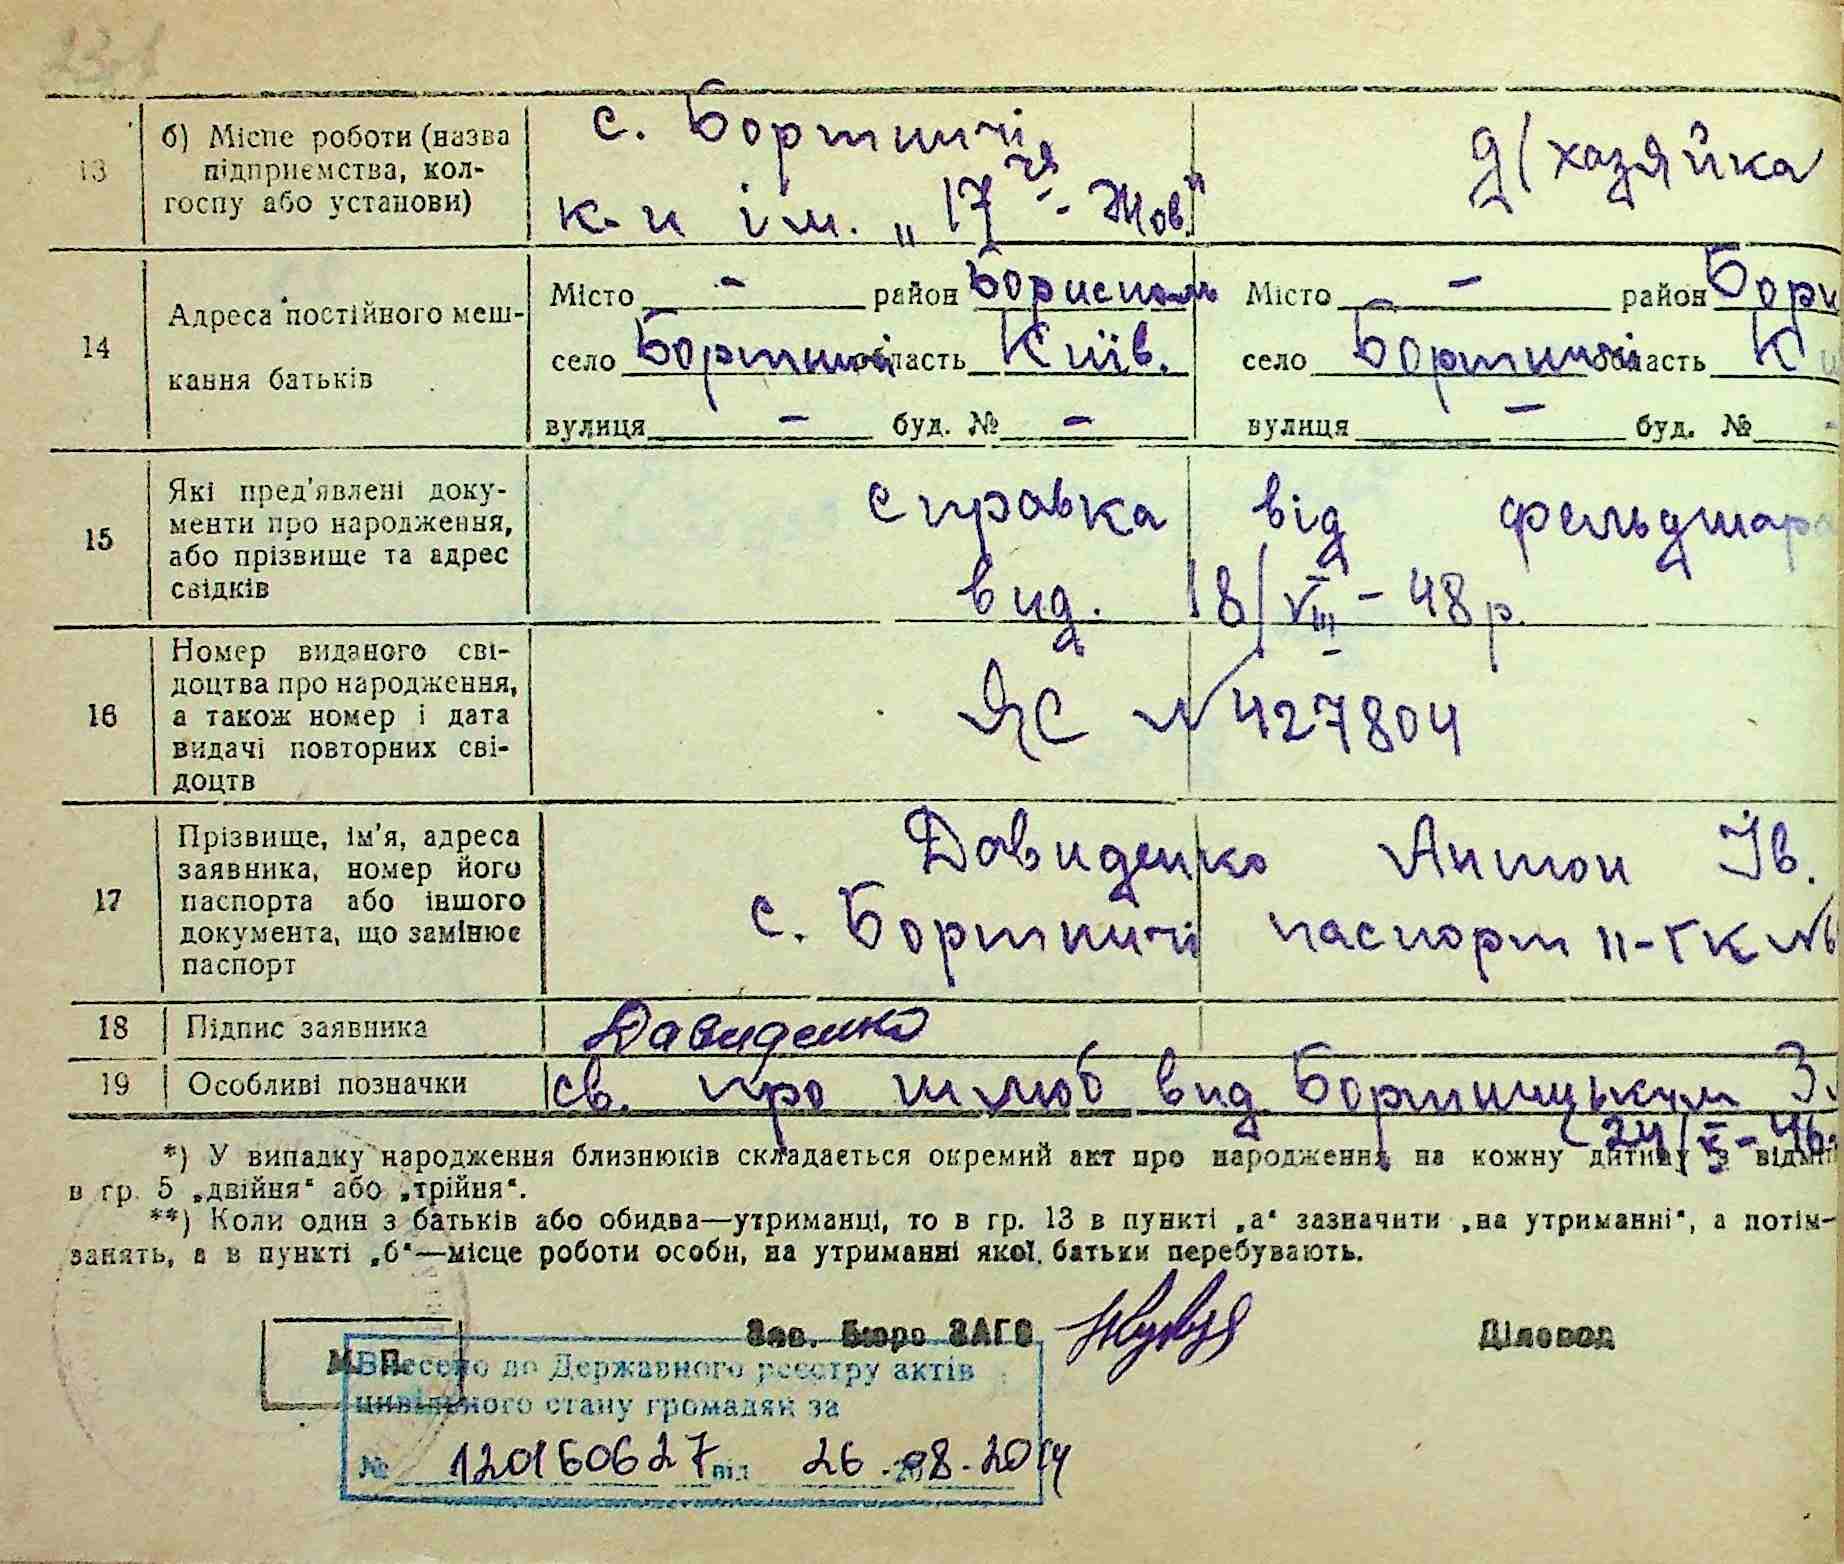 13 б) Місце роботи (назва підприємства, колгоспу або установи)
с. Бортничі
к-п ім. „17 ч/я - Жов."
д/хазяйка
14 Адреса постійного мешкання батьків
Місто - район Бориспол
село Бортничі область Київ.
вулиця - буд. № -
Місто - район Бори
село Бортничі область Ки
вулиця - буд. № -
15 Які пред'явлені документи про народження, або прізвище та адрес свідків
справка від фельдшара
вид. 18/VIII - 48 р.
16 Номер виданого свідоцтва про народження, а також номер і дата видачі повторних свідоцтв
ЯС № 427804
17 Прізвище, ім'я, адреса заявника, номер його паспорта або іншого документа, що замінює паспорт
Давиденко Антон Ів.
с. Бортничі паспорт II-ГК №
18 Підпис заявника
Давиденко
19 Особливі позначки
св. про шлюб вид. Бортницьким З.
24/X - 46
*) У випадку народження близнюків складається окремий акт про народження на кожну дитину з відміт
в гр. 5 „двійня" або „трійня".
**) Коли один з батьків або обидва—утриманці, то в гр. 13 в пункті „а" зазначити „на утриманні", а потім—
занять, а в пункті „б"—місце роботи особи, на утриманні якої батьки перебувають.
Зав. Бюро ЗАГС
Діловод
М. П.
Внесено до Державного реєстру актів
цивільного стану громадян за
№ 120160627 від 26.08.2014